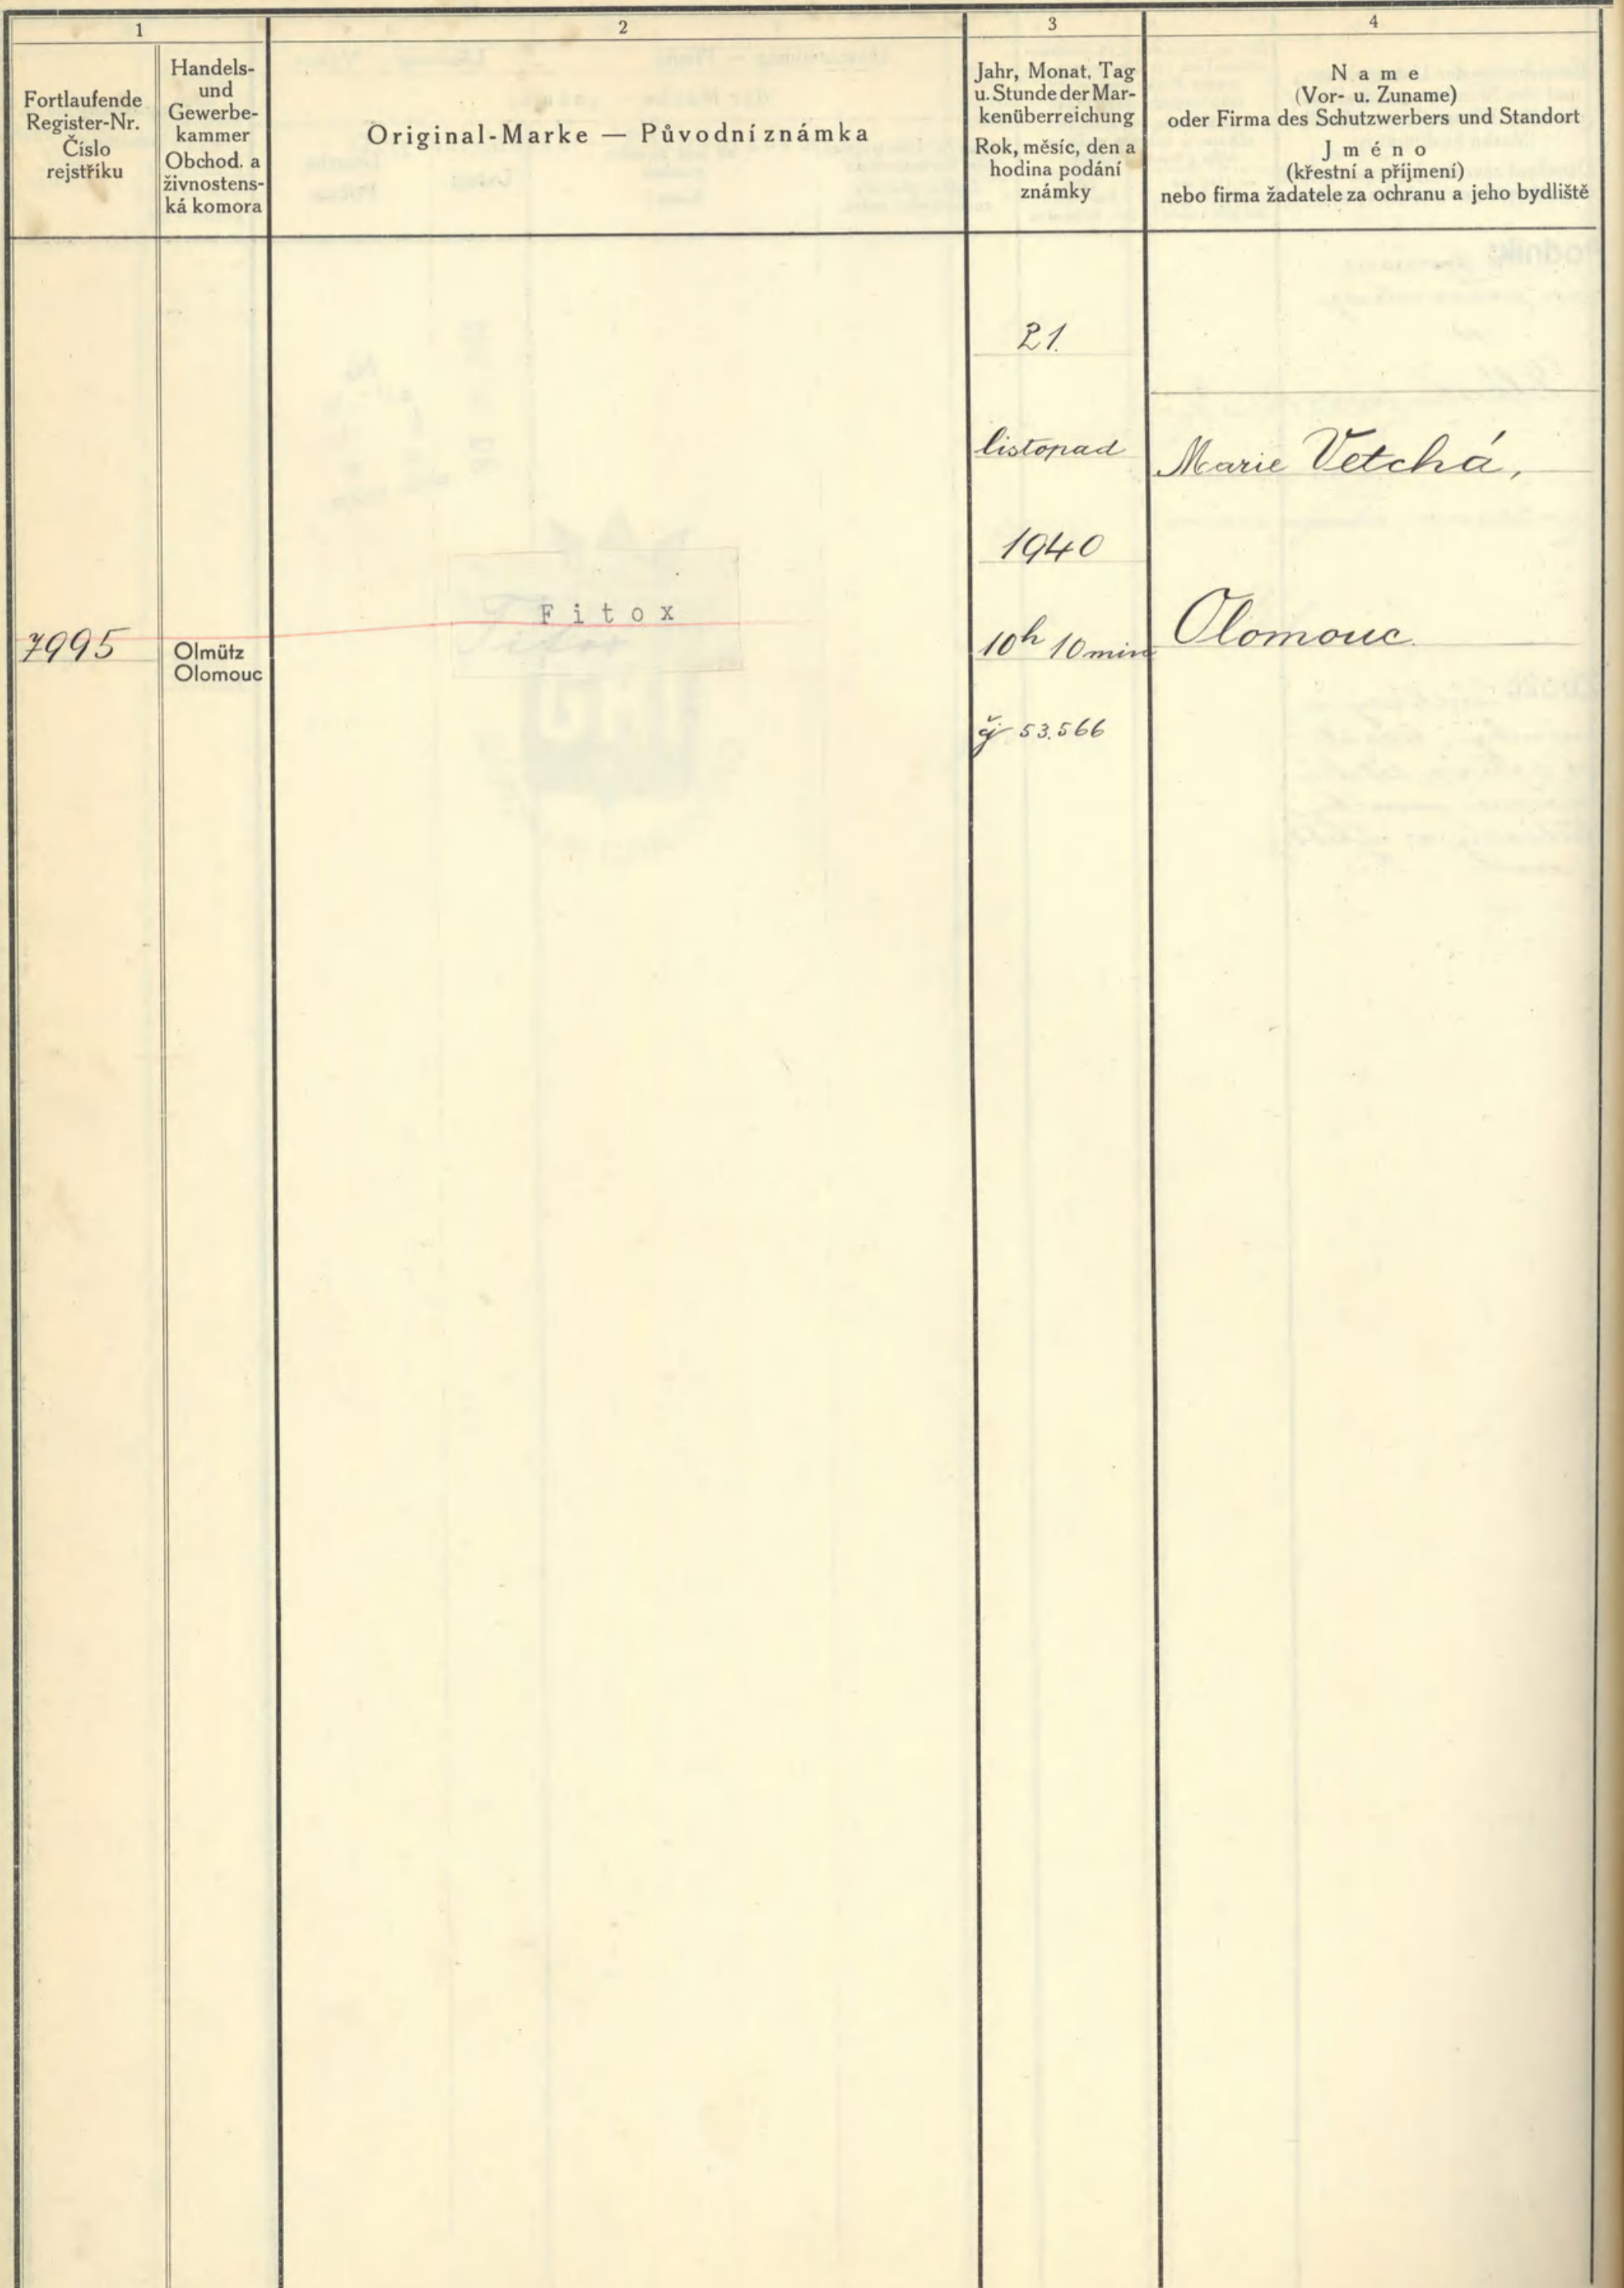 1
2
3
4
Fortlaufende
Register-Nr.
Číslo
rejstříku
Handels-
und
Gewerbe-
kammer
Obchod. a
živnostens-
ká komora
Original-Marke — Původní známka
Jahr, Monat, Tag
u. Stunde der Mar-
kenüberreichung
Rok, měsíc, den a
hodina podání
známky
Name
(Vor- u. Zuname)
oder Firma des Schutzwerbers und Standort
Jméno
(křestní a příjmení)
nebo firma žadatele za ochranu a jeho bydliště
7995
Olmütz
Olomouc
Fitox
21.
listopad
1940
10h 10min
čj 53.566
Marie Vetchá,
Olomouc.